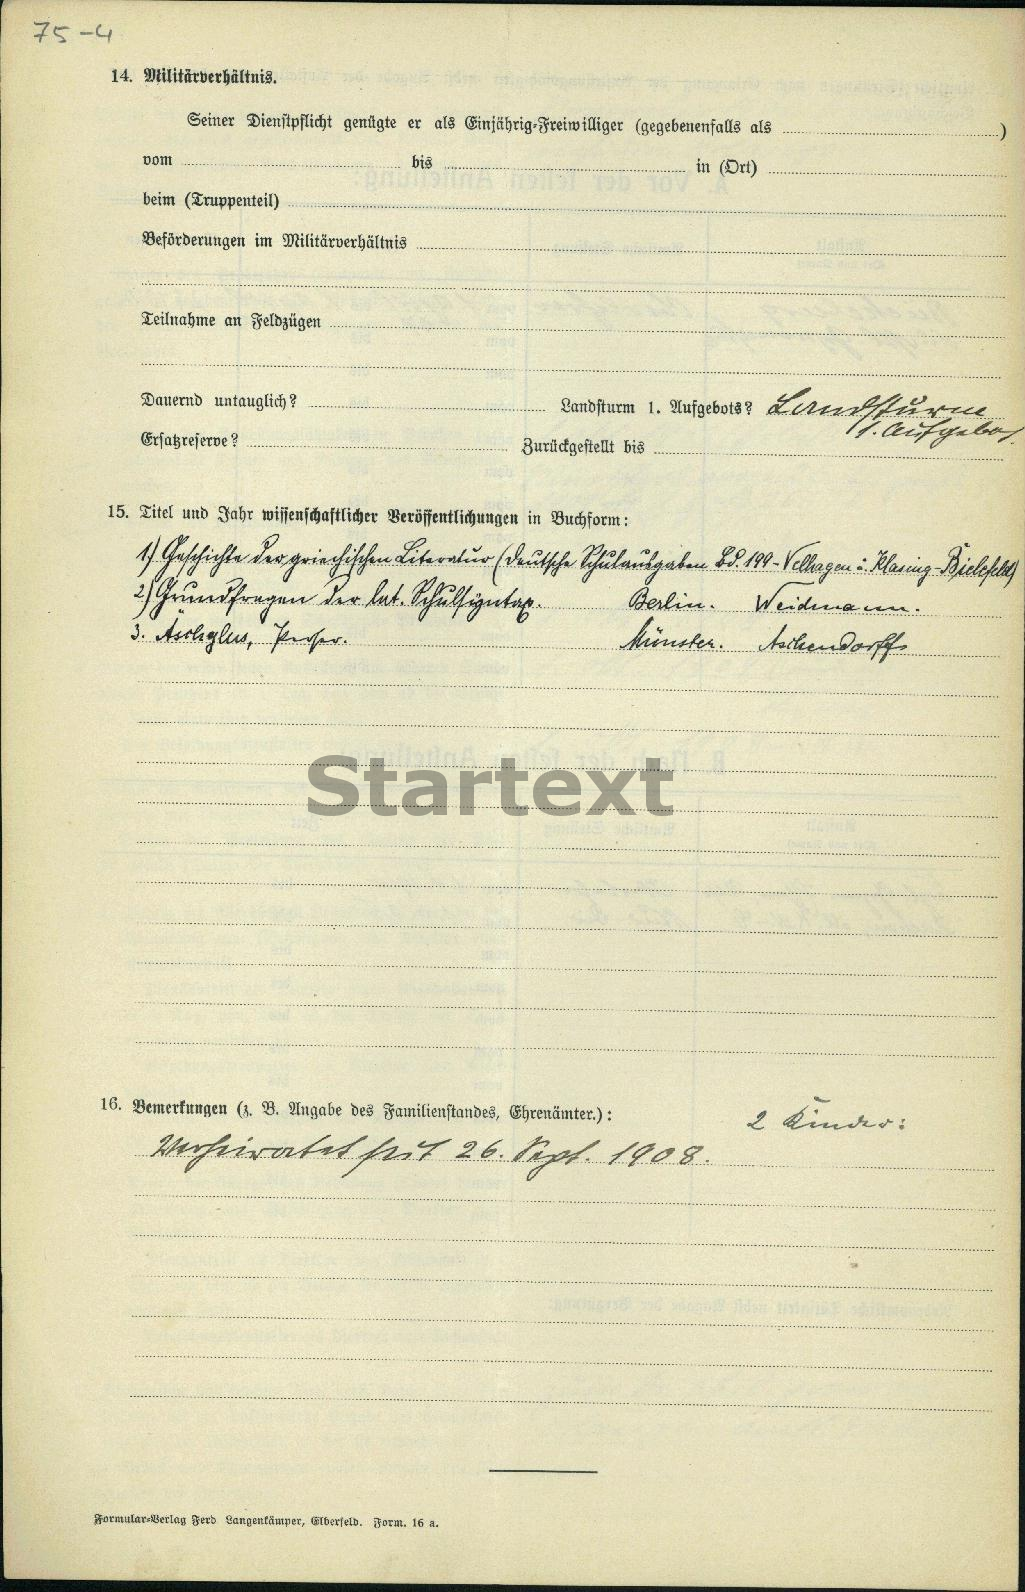 75-4
14. Militärverhältnis.
Seiner Dienstpflicht genügte er als Einjährig-Freiwilliger (gegebenenfalls als )
vom bis in (Ort)
beim (Truppenteil)
Beförderungen im Militärverhältnis
Teilnahme an Feldzügen
Dauernd untauglich? Landsturm 1. Aufgebots? Landsturm
1. Aufgebot.
Ersatzreserve? Zurückgestellt bis
15. Titel und Jahr wissenschaftlicher Veröffentlichungen in Buchform:
1) Geschichte der griechischen Literatur (Deutsche Schulausgaben Bd. 199 - Velhagen u. Klasing - Bielefeld)
2) Grundfragen der lat. Schulsyntax. Berlin. Weidmann.
3. Äschylus, Perser. Münster. Aschendorff
Startext
16. Bemerkungen (z. B. Angabe des Familienstandes, Ehrenämter.): 2 Kinder:
Verheiratet seit 26. Sept. 1908.
Formular-Verlag Ferd Langenkämper, Elberfeld. Form. 16 a.